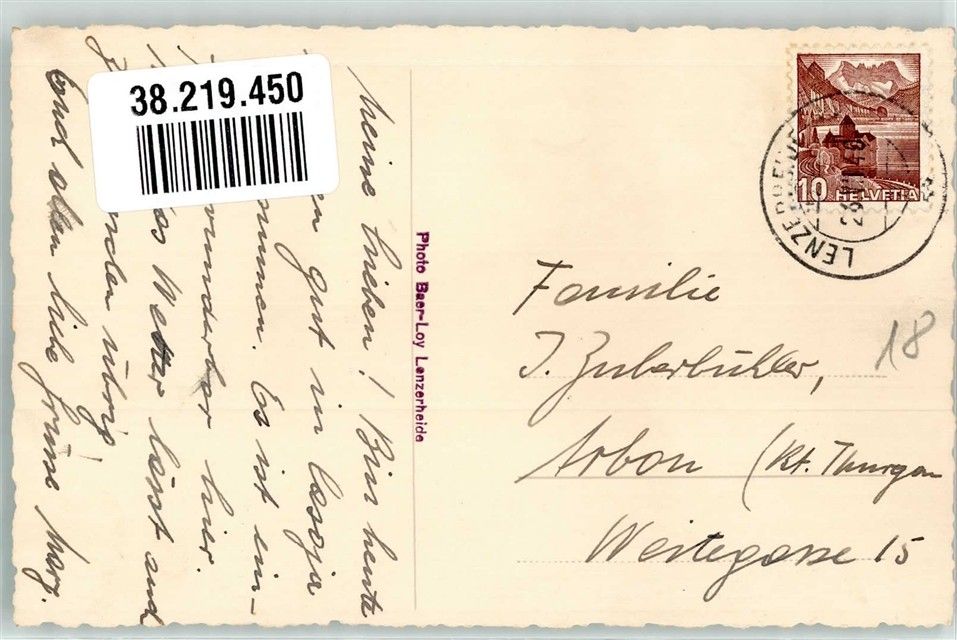 38.219.450
Meine Lieben! Bin heute
gut in
Es ist ein-
wunderbar hier.
das Wetter lässt
übrig!
Euch allen liebe Grüsse Marg.
Photo Baer-Loy Lenzerheide
10 HELVETIA
LENZERHEIDE
Familie
J. Zuberbühler,
Arbon (Kt. Thurgau
Weitegasse 15
18